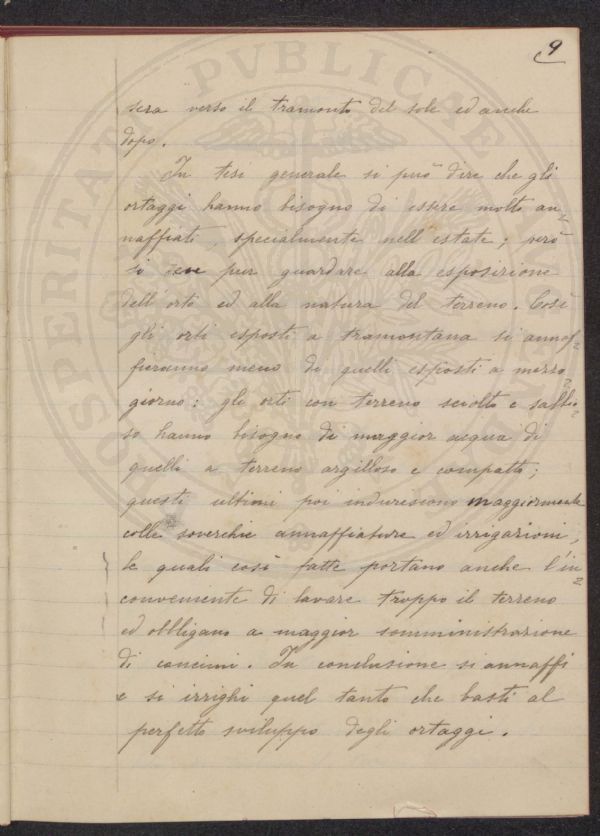 9
sera verso il tramonto del sole ed anche
dopo.
In tesi generale si può dire che gli
ortaggi hanno bisogno di essere molto an=
naffiati, specialmente nell'estate; però
si deve pur guardare alla esposizione
dell'orto ed alla natura del terreno. Così
gli orti esposti a tramontana si annaf=
fieranno meno di quelli esposti a mezzo=
giorno: gli orti con terreno sciolto e sabbio=
so hanno bisogno di maggior acqua di
quelli a terreno argilloso e compatto;
questi ultimi poi induriscono maggiormente
colle soverchie annaffiature ed irrigazioni,
le quali così fatte portano anche l'in=
conveniente di lavare troppo il terreno
ed obbligano a maggior somministrazione
di concimi. In conclusione si annaffi
e si irrighi quel tanto che basti al
perfetto sviluppo degli ortaggi.